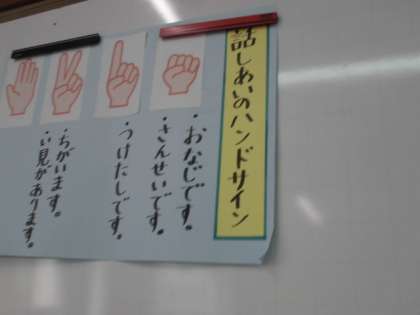 話しあいのハンドサイン
・おなじです。
・さんせいです。
・つけたしです。
・ちがいます。
・い見があります。